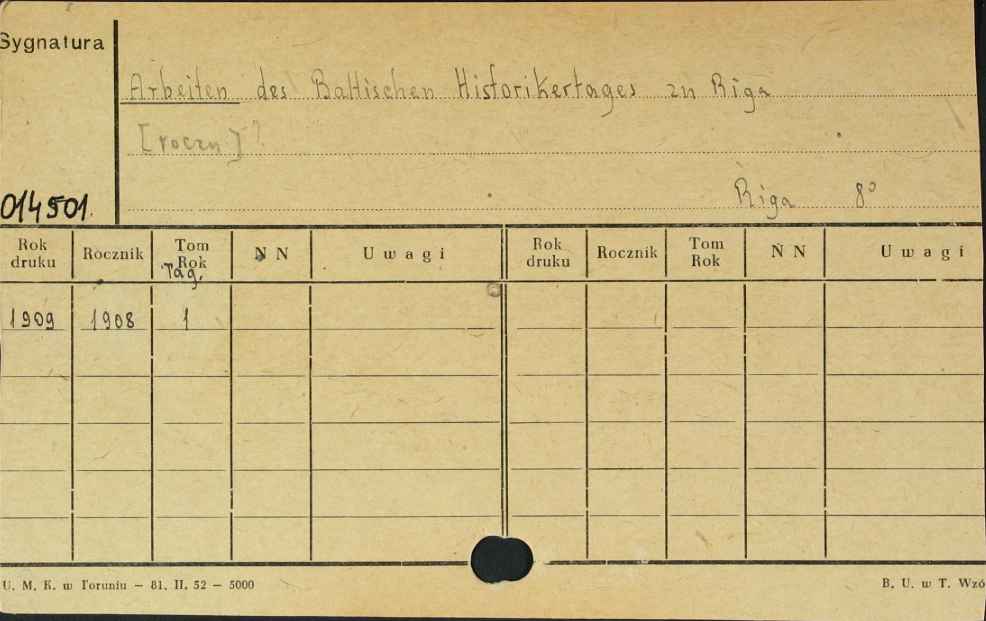 Sygnatura
Arbeiten des Baltischen Historikertages zu Riga
[roczn]?
Riga 8°
014501
Rok druku Rocznik Tom Rok Tag. N N Uwagi Rok druku Rocznik Tom Rok N N Uwagi
1909 1908 1
U. M. K. w Toruniu – 81. II. 52 – 5000
B. U. w T. Wzó